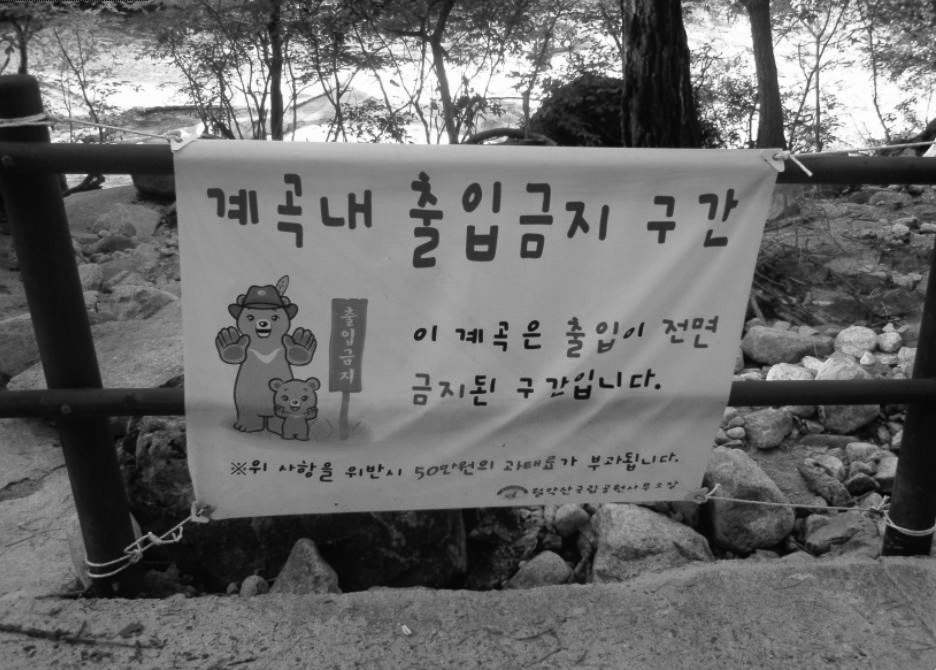 계곡내 출입금지 구간
출입금지
이 계곡은 출입이 전면
금지된 구간입니다.
※위 사항을 위반시 50만원의 과태료가 부과됩니다.
국립공원사무소장